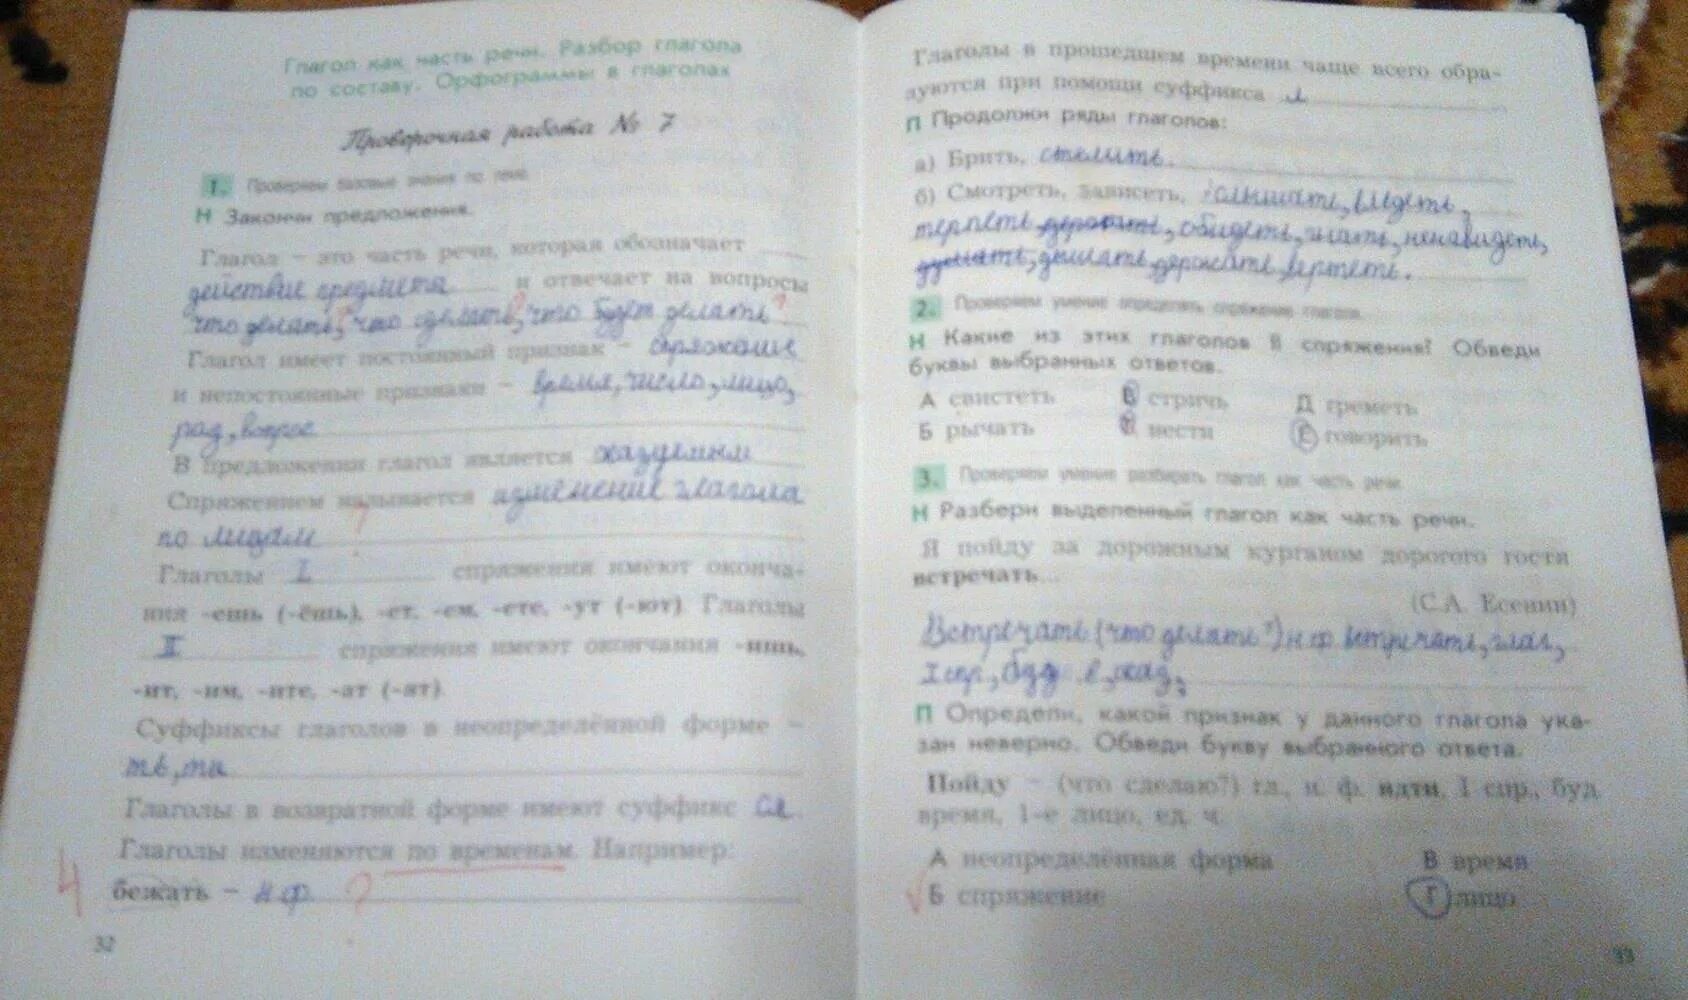 Глагол как часть речи. Разбор глагола
по составу. Орфограммы в глаголах
Проверочная работа № 7
1. Проверяем базовые знания по теме.
Н Закончи предложения.
Глагол – это часть речи, которая обозначает
действие предмета и отвечает на вопросы
что делать? что сделать? что будет делать?
Глагол имеет постоянный признак – спряжение
и непостоянные признаки – время, число, лицо,
род, вопрос
В предложении глагол является сказуемым
Спряжением называется изменение глагола
по лицам ?
Глаголы I спряжения имеют оконча-
ния -ешь (-ёшь), -ет, -ем, -ете, -ут (-ют). Глаголы
II спряжения имеют окончания -ишь,
-ит, -им, -ите, -ат (-ят).
Суффиксы глаголов в неопределённой форме –
ть, ти
Глаголы в возвратной форме имеют суффикс ся.
Глаголы изменяются по временам. Например:
4 бежать – н.ф. ?
32
Глаголы в прошедшем времени чаще всего обра-
зуются при помощи суффикса л
П Продолжи ряды глаголов:
а) Брить, стелить.
б) Смотреть, зависеть, слышать, видеть,
терпеть, держать, обидеть, гнать, ненавидеть,
дышать, держать, вертеть.
2. Проверяем умение определять спряжение глагола.
Н Какие из этих глаголов II спряжения? Обведи
буквы выбранных ответов.
А свистеть В стричь Д греметь
Б рычать Г нести Е говорить
3. Проверяем умение разбирать глагол как часть речи.
Н Разбери выделенный глагол как часть речи.
Я пойду за дорожным курганом дорогого гостя
встречать...
(С.А. Есенин)
Встречать (что делать?) н.ф. встречать, глаг,
I спр., буд. в., сказ,
П Определи, какой признак у данного глагола ука-
зан неверно. Обведи букву выбранного ответа.
Пойду – (что сделаю?) гл., н. ф. идти, I спр., буд.
время, 1-е лицо, ед. ч.
А неопределённая форма В время
Б спряжение Г лицо
33